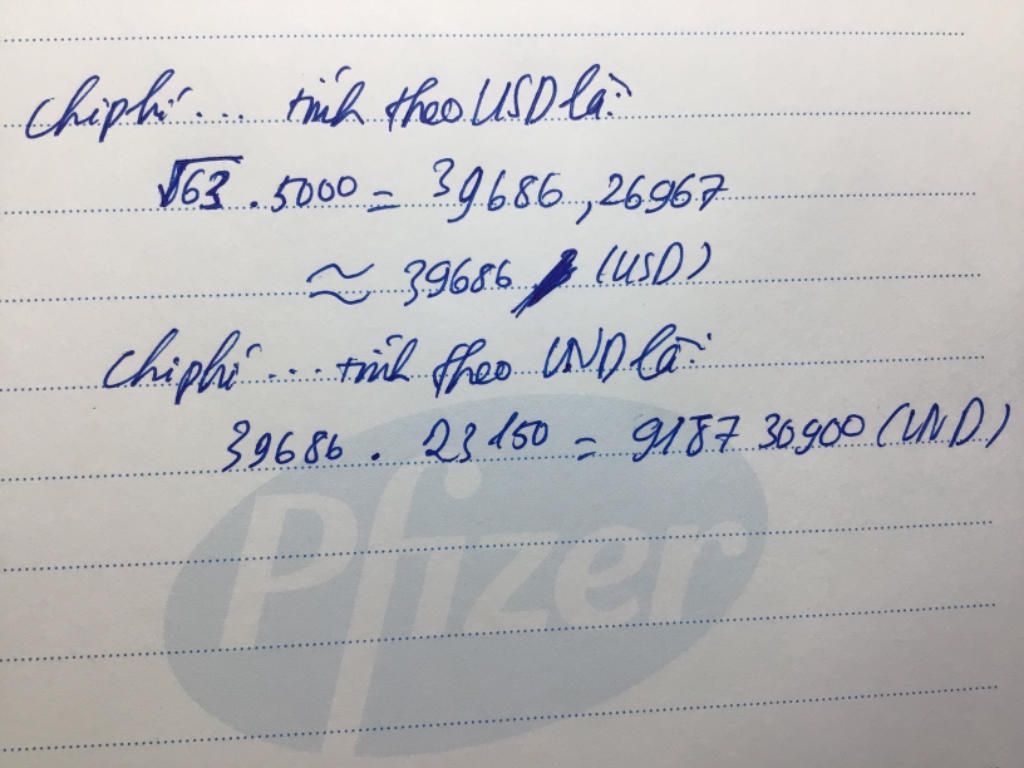 Chi phí ... tính theo USD là:
√63 . 5000 = 39686,26967
≈ 39686 (USD)
Chi phí ... tính theo VND là:
39686 . 23150 = 918730900 (VND)
Pfizer